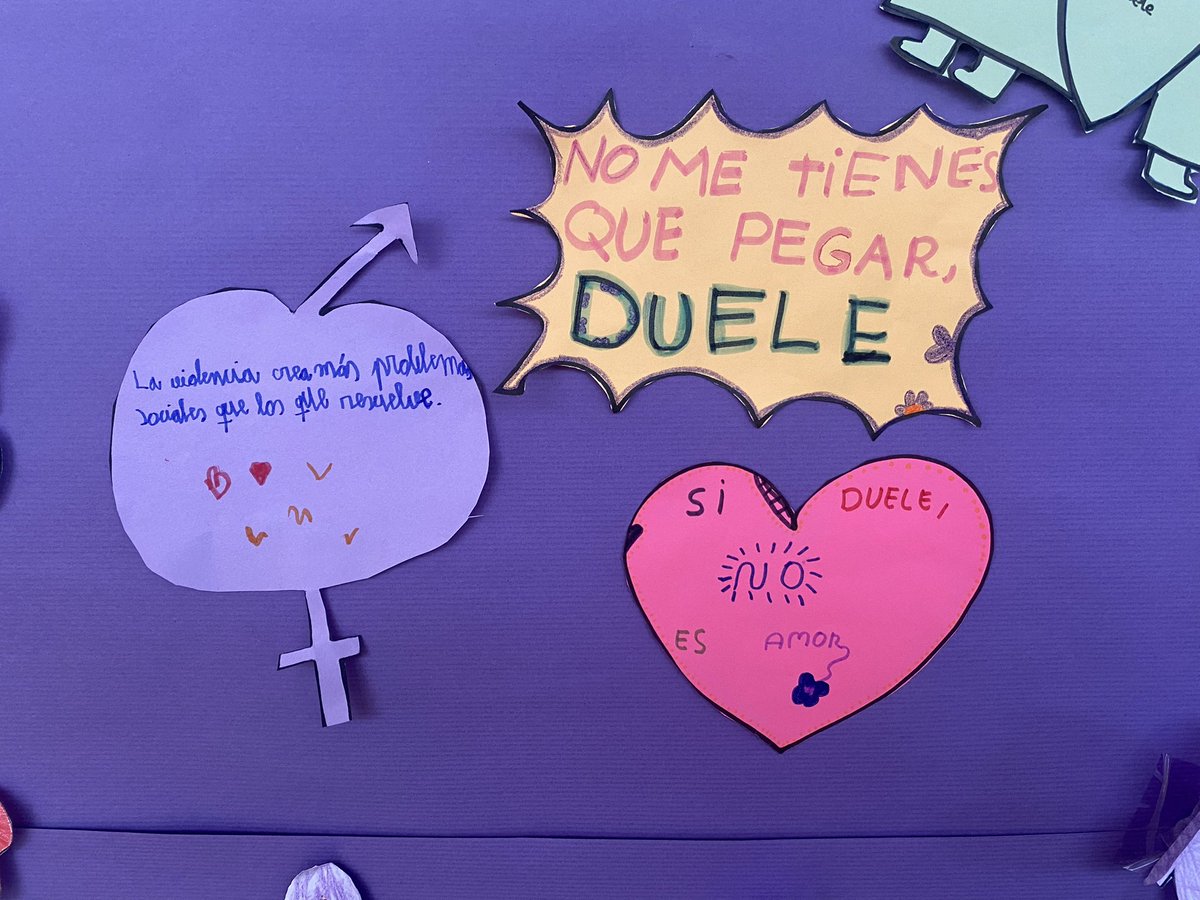 NO ME tiENES
QUE PEGAR,
DUELE
La violencia crea más problemas
sociales que los que resuelve.
Si DUELE,
NO
ES AMOR